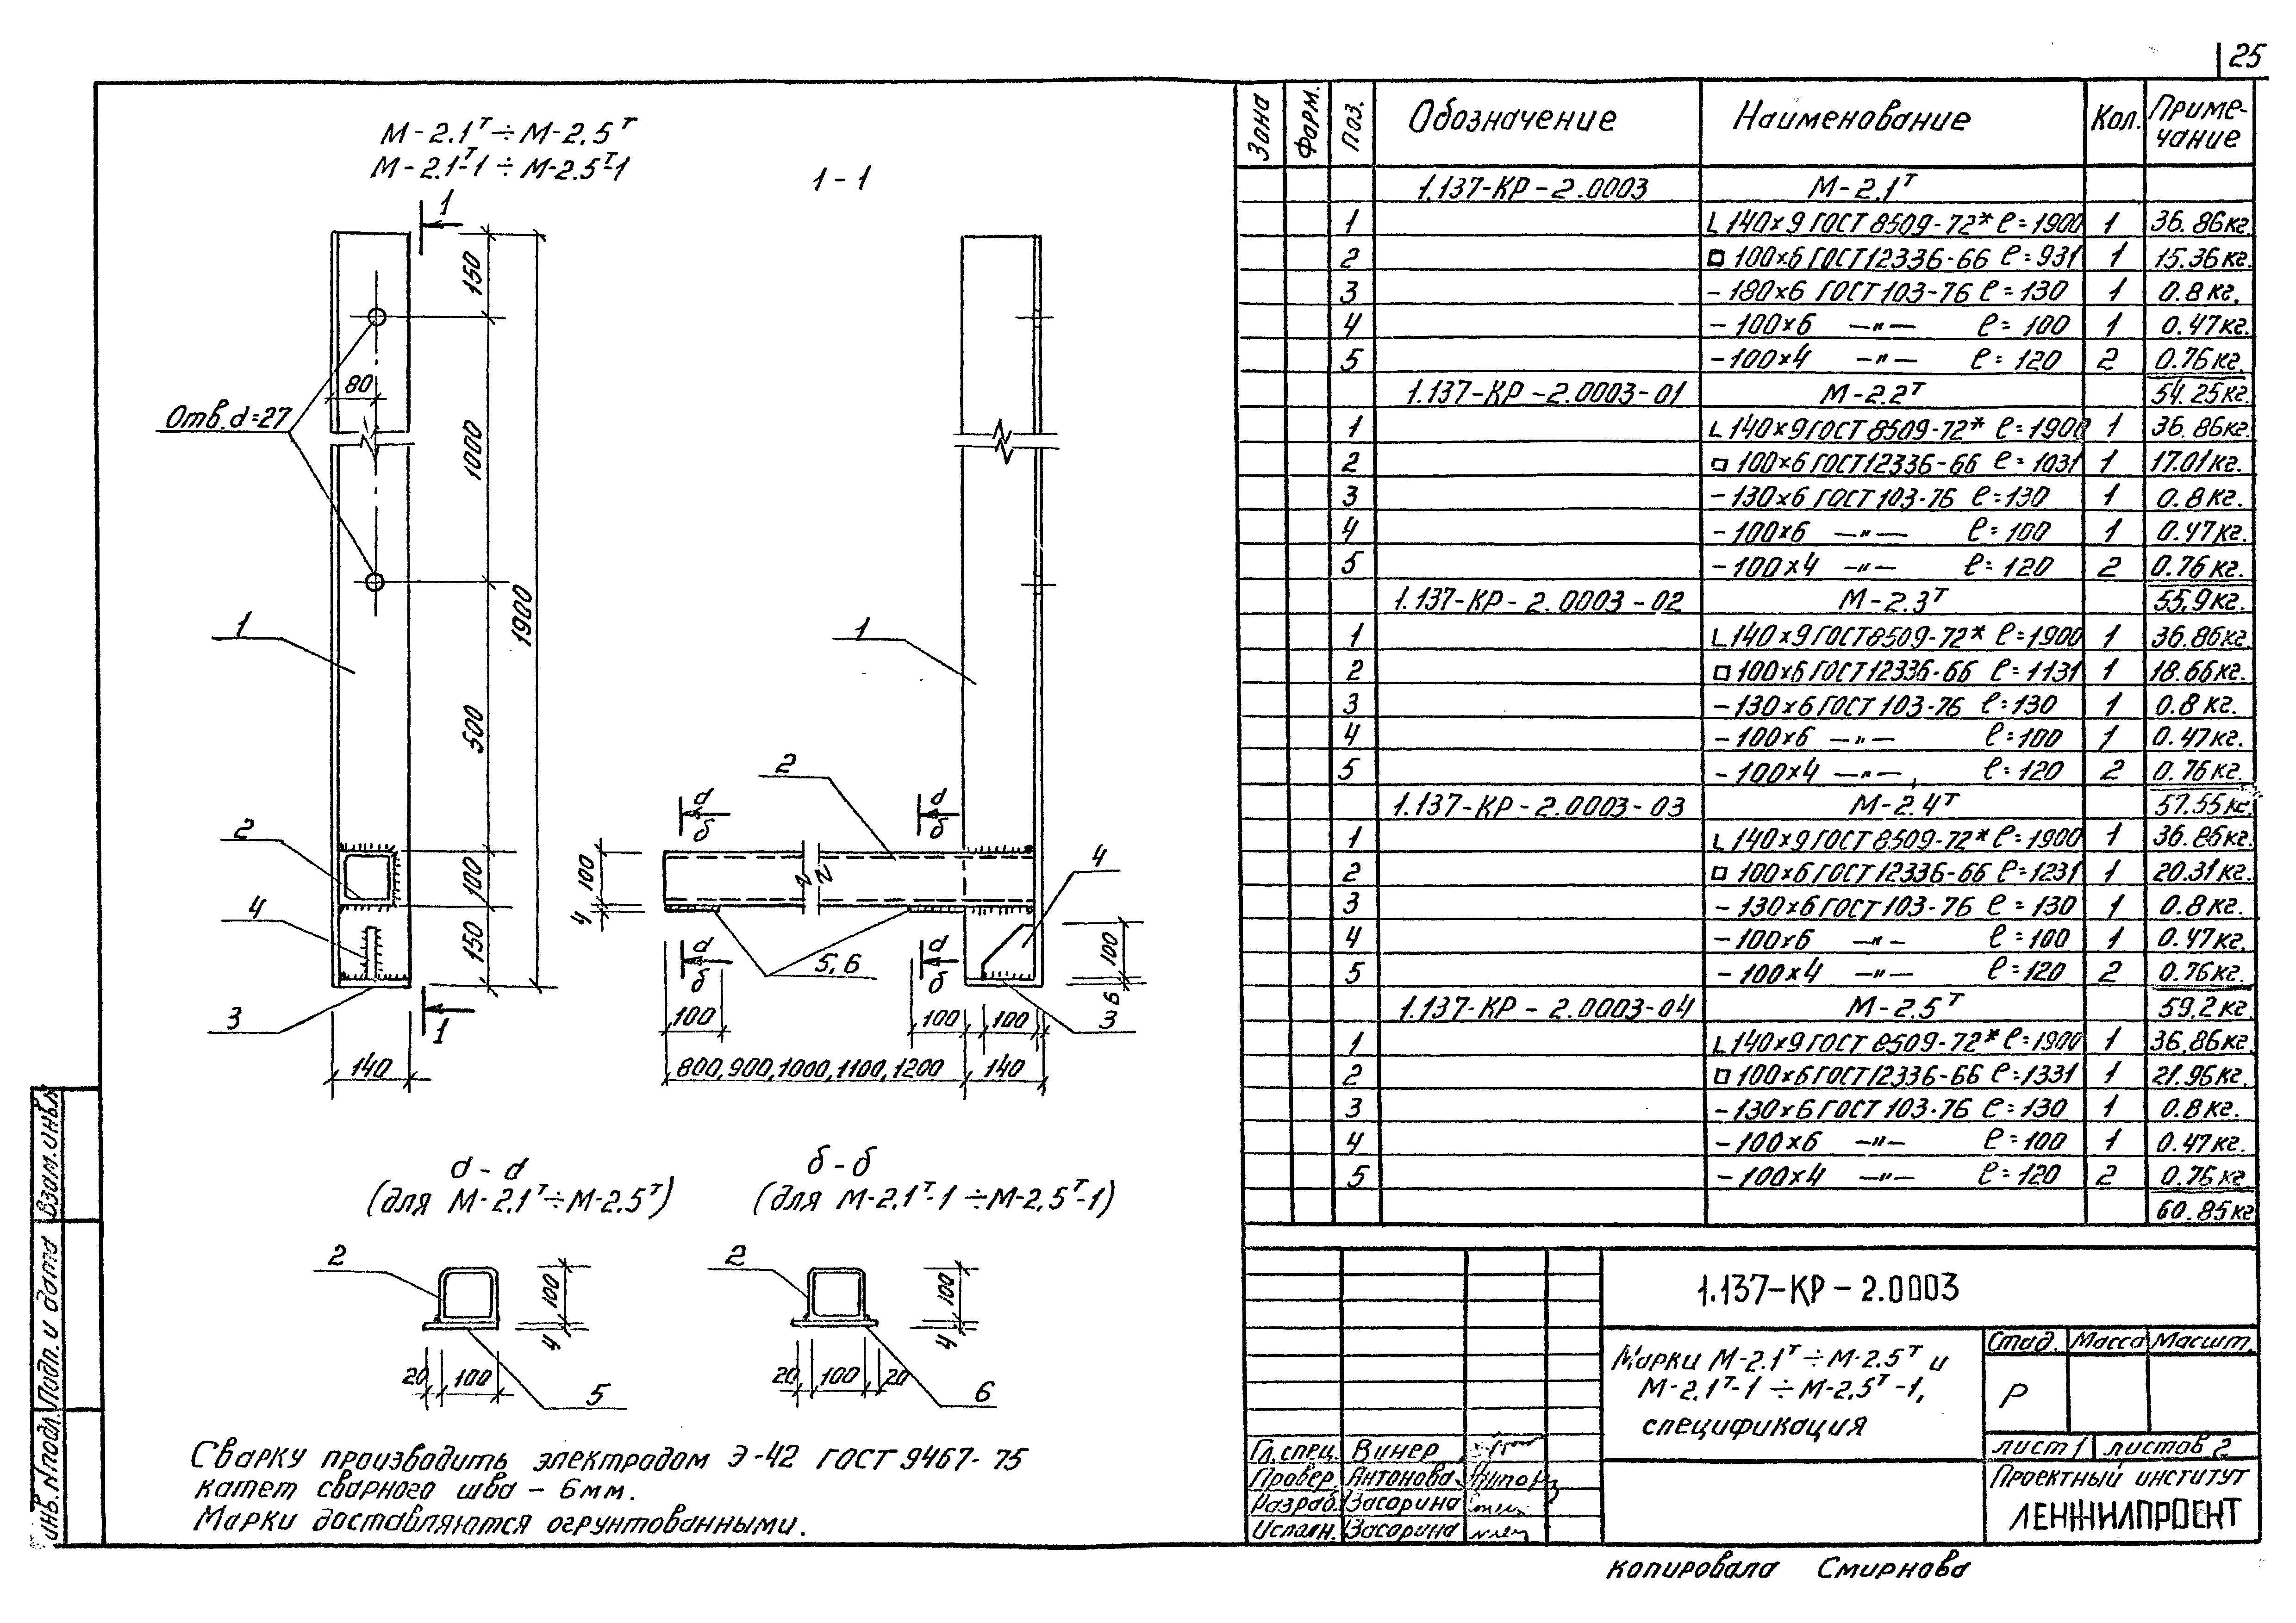 25
М-2.1ᵀ÷М-2.5ᵀ
М-2.1ᵀ-1÷М-2.5ᵀ-1
1-1
1
150
80
Отв. d=27
1000
1900
1
1
500
2
2
100
4
150
3
1
140
а
б
а
б
100
4
4
а
б
а
б
5,6
100
6
3
100
100
100
800,900,1000,1100,1200
140
а-а
(для М-2.1ᵀ÷М-2.5ᵀ)
б-б
(для М-2.1ᵀ-1÷М-2.5ᵀ-1)
2
100
4
20
100
5
2
100
4
20
100
20
6
Сварку производить электродом Э-42 ГОСТ 9467-75
катет сварного шва - 6мм.
Марки доставляются огрунтованными.
Зона Форм. Поз. Обозначение Наименование Кол. Примечание
1.137-КР-2.0003 М-2.1ᵀ
1 L 140×9 ГОСТ 8509-72* ℓ=1900 1 36.86кг.
2 □ 100×6 ГОСТ 12336-66 ℓ=931 1 15.36кг.
3 -180×6 ГОСТ 103-76 ℓ=130 1 0.8кг.
4 -100×6 —„— ℓ=100 1 0.47кг.
5 -100×4 —„— ℓ=120 2 0.76кг.
1.137-КР-2.0003-01 М-2.2ᵀ 54.25кг.
1 L 140×9 ГОСТ 8509-72* ℓ=1900 1 36.86кг.
2 □ 100×6 ГОСТ 12336-66 ℓ=1031 1 17.01кг.
3 -130×6 ГОСТ 103-76 ℓ=130 1 0.8кг.
4 -100×6 —„— ℓ=100 1 0.47кг.
5 -100×4 —„— ℓ=120 2 0.76кг.
1.137-КР-2.0003-02 М-2.3ᵀ 55,9кг.
1 L 140×9 ГОСТ 8509-72* ℓ=1900 1 36.86кг.
2 □ 100×6 ГОСТ 12336-66 ℓ=1131 1 18.66кг.
3 -130×6 ГОСТ 103-76 ℓ=130 1 0.8кг.
4 -100×6 —„— ℓ=100 1 0.47кг.
5 -100×4 —„— ℓ=120 2 0.76кг.
1.137-КР-2.0003-03 М-2.4ᵀ 57.55кг.
1 L 140×9 ГОСТ 8509-72* ℓ=1900 1 36.86кг.
2 □ 100×6 ГОСТ 12336-66 ℓ=1231 1 20.31кг.
3 -130×6 ГОСТ 103-76 ℓ=130 1 0.8кг.
4 -100×6 —„— ℓ=100 1 0.47кг.
5 -100×4 —„— ℓ=120 2 0.76кг.
1.137-КР-2.0003-04 М-2.5ᵀ 59,2кг.
1 L 140×9 ГОСТ 8509-72* ℓ=1900 1 36,86кг.
2 □ 100×6 ГОСТ 12336-66 ℓ=1331 1 21.96кг.
3 -130×6 ГОСТ 103-76 ℓ=130 1 0.8кг.
4 -100×6 —„— ℓ=100 1 0.47кг.
5 -100×4 —„— ℓ=120 2 0.76кг
60.85кг
1.137-КР-2.0003
Марки М-2.1ᵀ÷М-2.5ᵀ и
М-2.1ᵀ-1÷М-2.5ᵀ-1,
спецификация
Стад. Масса Масшт.
Р
лист 1 листов 2
Проектный институт
ЛЕНЖИЛПРОЕКТ
Гл.спец. Винер
Провер. Антонова
Разраб. Засорина
Исполн. Засорина
копировала Смирнова
Взам.инв.№
Подп. и дата
инв.№подл.